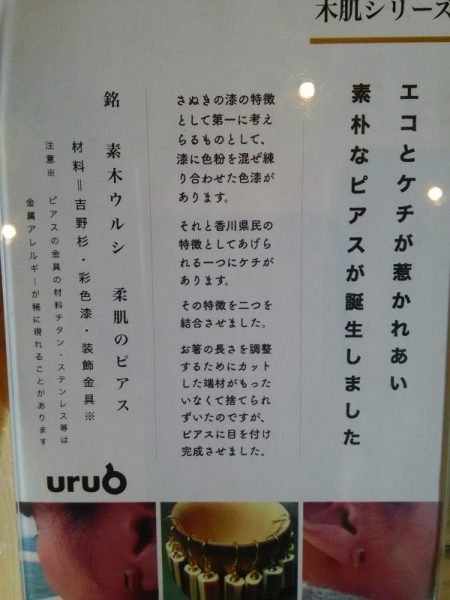 木肌シリーズ
エコとケチが惹かれあい
素朴なピアスが誕生しました
さぬきの漆の特徴
として第一に考え
らるものとして、
漆に色粉を混ぜ練
り合わせた色漆が
あります。
それと香川県民の
特徴としてあげら
れる一つにケチが
あります。
その特徴を二つを
結合させました。
お箸の長さを調整
するためにカット
した端材がもった
いなくて捨てられ
ずいたのですが、
ピアスに目を付け
完成させました。
銘 素木ウルシ 柔肌のピアス
材料＝吉野杉・彩色漆・装飾金具※
注意※ ピアスの金具の材料チタン・ステンレス等は
金属アレルギーが稀に現れることがあります
uruo